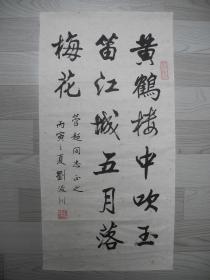 黄鹤楼中吹玉
笛江城五月落
梅花
营超同志正之
丙寅之夏刘汝川